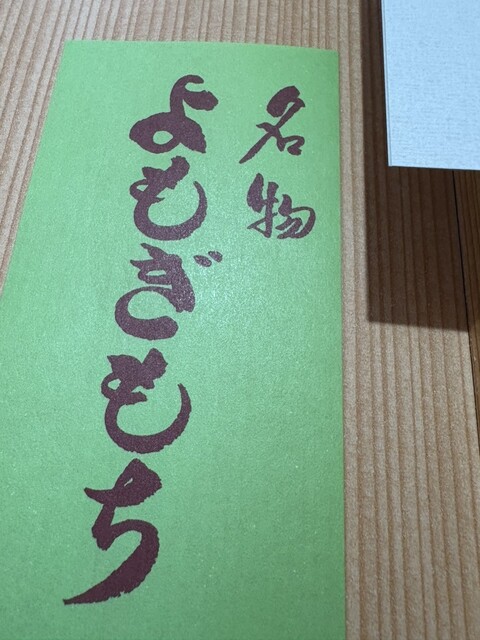 名物
よもぎもち